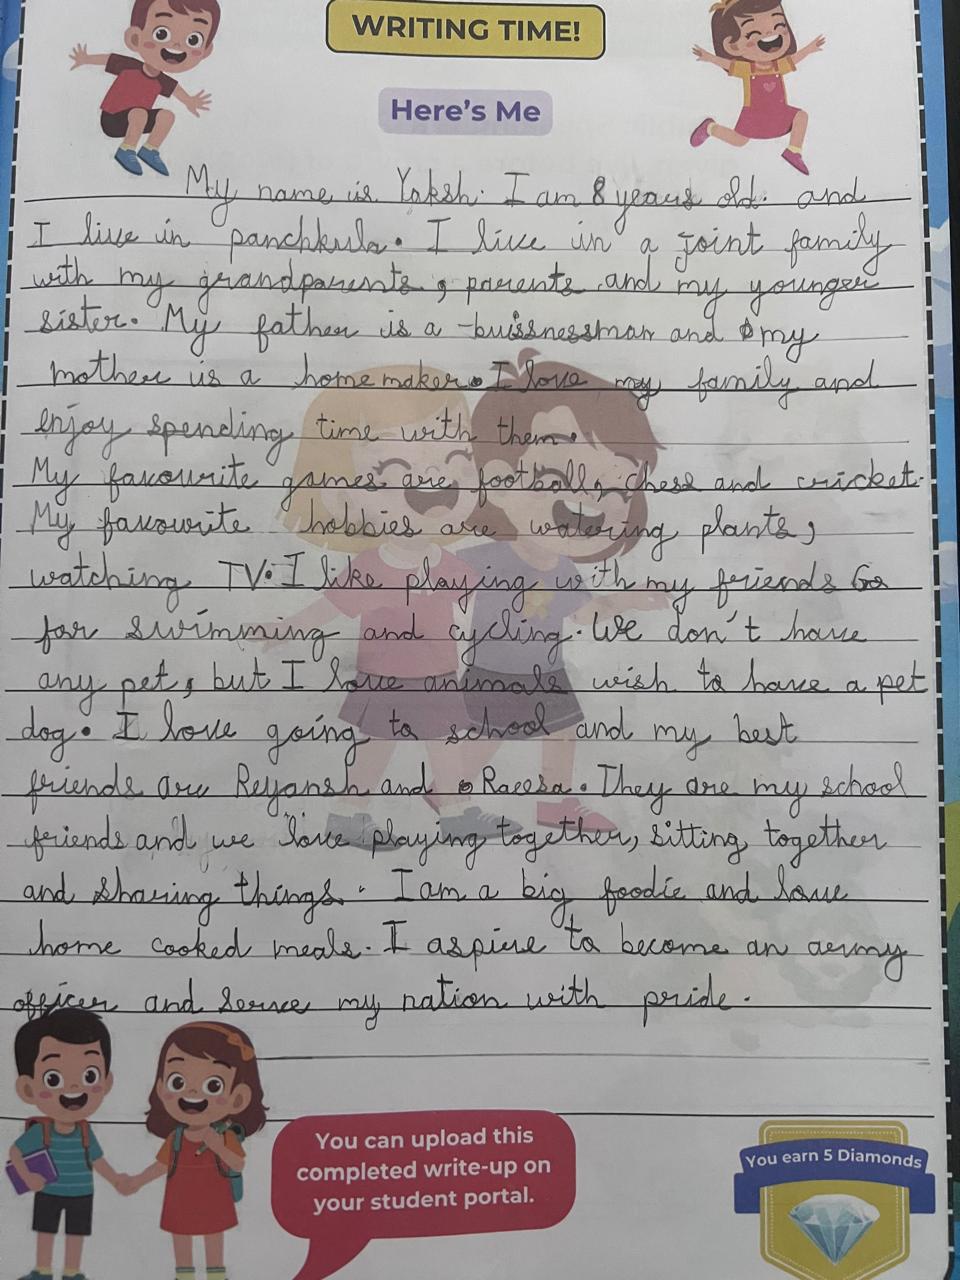 WRITING TIME!
Here's Me
My name is Yaksh. I am 8 years old. and
I live in panchkula. I live in a joint family
with my grandparents, parents and my younger
sister. My father is a buissnessman and my
mother is a homemaker. I love my family and
enjoy spending time with them.
My favourite games are football, chess and cricket.
My favourite hobbies are watering plants,
watching TV. I like playing with my friends Go
for swimming and cycling. We don't have
any pet, but I love animals wish to have a pet
dog. I love going to school and my best
friends are Reyansh and Raeesa. They are my school
friends and we love playing together, sitting together
and sharing things. I am a big foodie and love
home cooked meals. I aspire to become an army
officer and serve my nation with pride.
You can upload this
completed write-up on
your student portal.
You earn 5 Diamonds